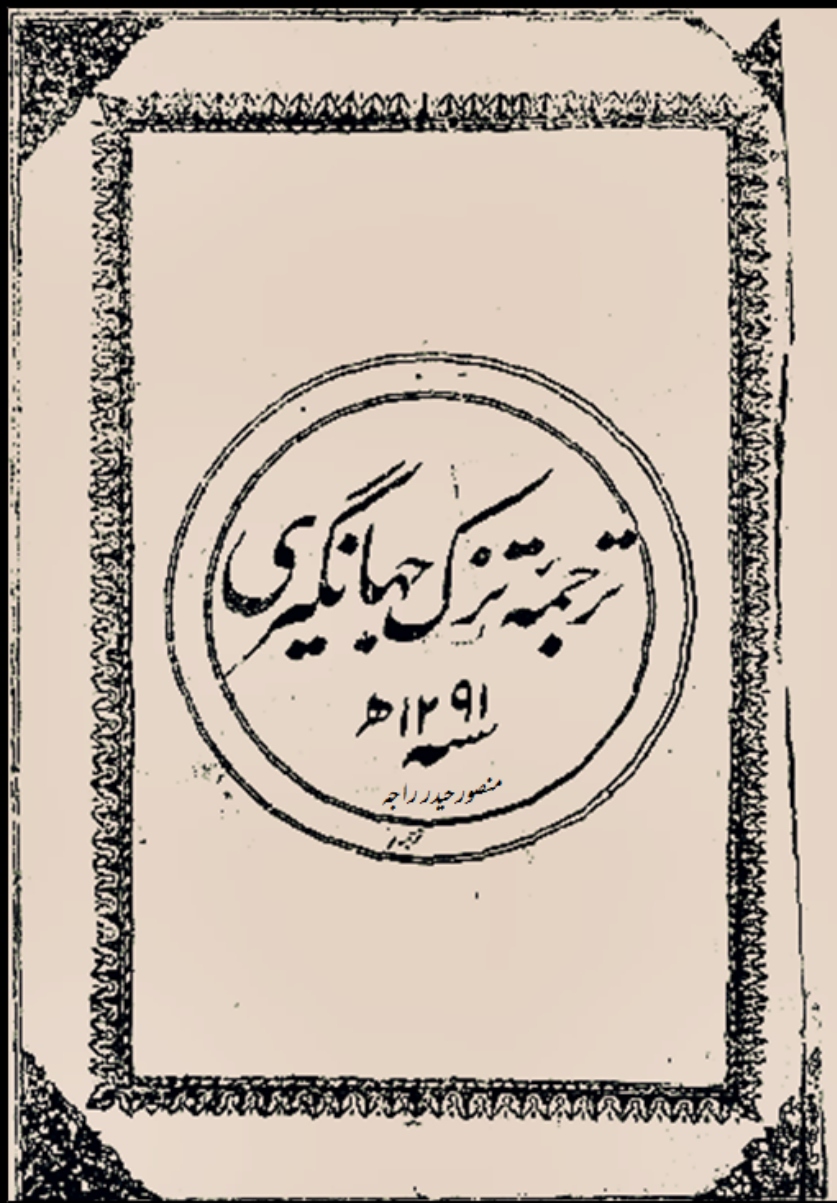 ترجمۂ تزک جہانگیری
۱۲۹۱ھ
سنہ
منصور حیدر راجہ